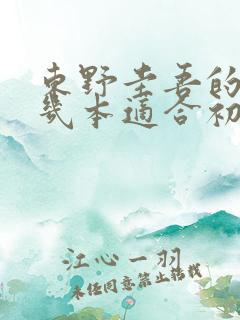 东野圭吾的
几本适合初
江心一羽
未经同意禁止转载